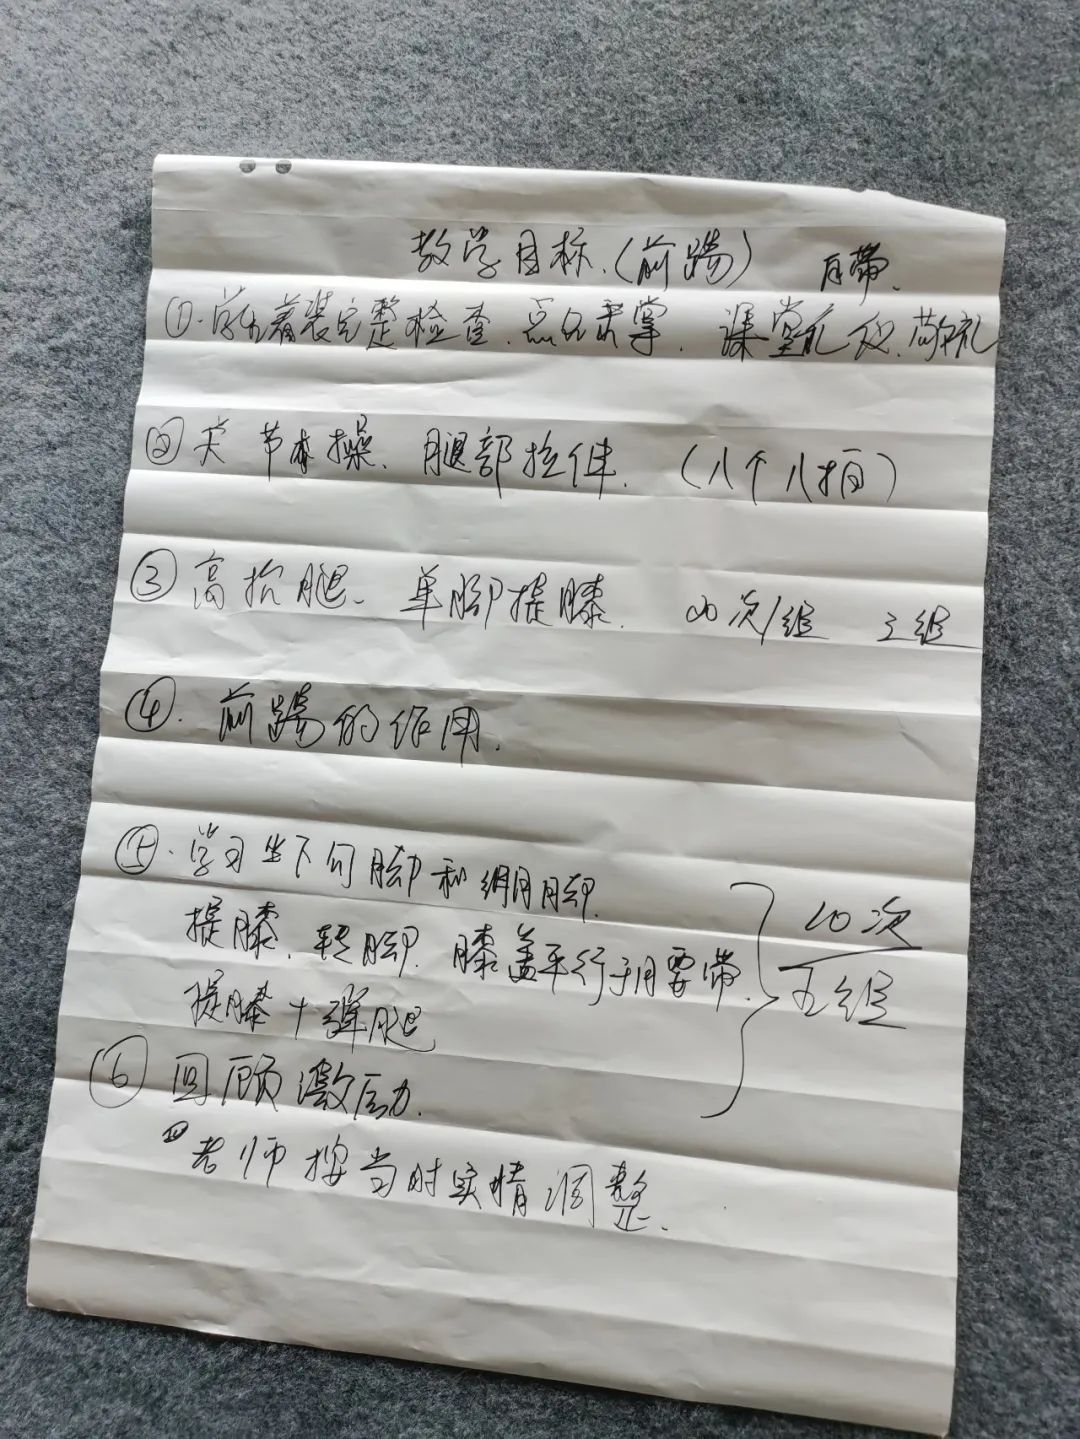 教学目标、(前踢) 白带、
①·学生着装完整检查、点名掌、课堂礼仪、敬礼
② 关节操、腿部拉伸、(八个八拍)
③ 高抬腿、单脚提膝、20次/组 三组
④、前踢的作用、
⑤·学习坐下勾脚和绷脚、
提膝、转脚、膝盖平行于腰带、 10次
提膝+弹腿 五组
⑥ 回顾激励、
老师按当时实情调整、